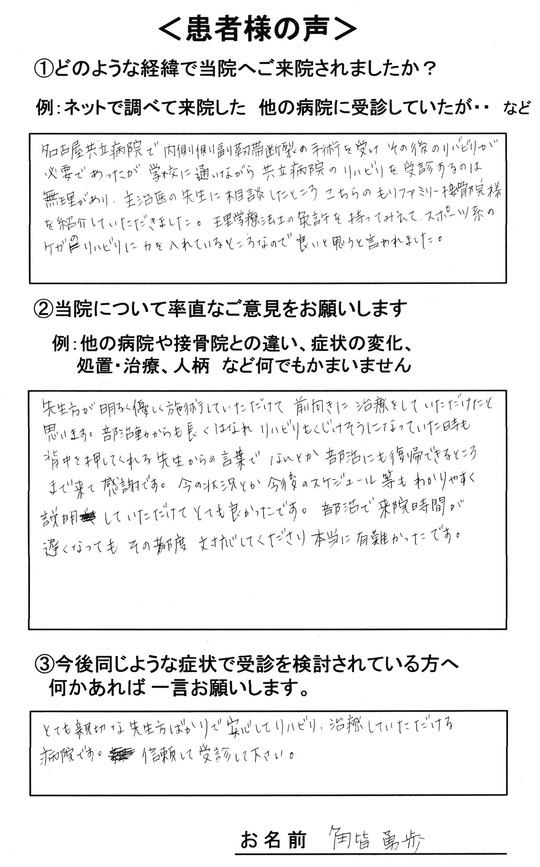 ＜患者様の声＞
①どのような経緯で当院へご来院されましたか？
例：ネットで調べて来院した　他の病院に受診していたが‥　など
名古屋共立病院で内側側副靭帯断裂の手術を受け その後のリハビリが
必要であったが 学校に通いながら 共立病院のリハビリを受診するのは
無理があり、主治医の先生に相談したところ こちらのもりファミリー接骨院様
を紹介していただきました。理学療法士の免許を持ってみえて スポーツ系の
ケガのリハビリに力を入れているところなので 良いと思うと言われました。
②当院について率直なご意見をお願いします
例：他の病院や接骨院との違い、症状の変化、
処置・治療、人柄　など何でもかまいません
先生方が明るく優しく施術していただけて 前向きに 治療をして いただけたと
思います。部活動からも長くはなれ リハビリもくじけそうになっていた時も
背中を押してくれる先生からの言葉で なんとか 部活にも復帰できるところ
まで来て 感謝です。今の状況とか 今後のスケジュール等も わかりやすく
説明していただけて とても良かったです。部活で来院時間が
遅くなっても その都度 対応してくださり 本当に有難かったです。
③今後同じような症状で受診を検討されている方へ
何かあれば 一言お願いします。
とても親切な先生方ばかりで 安心してリハビリ、治療していただける
病院です。信頼して受診して下さい。
お名前　角皆 勇歩